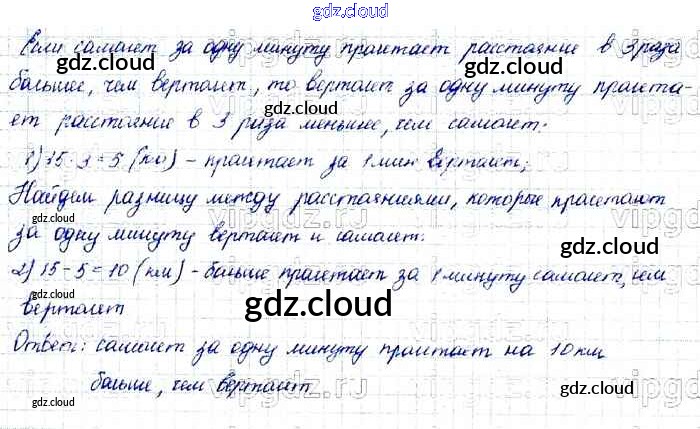 gdz.cloud
Если самолет за одну минуту пролетает расстояние в 3 раза
gdz.cloud
большее, чем вертолет, то вертолет за одну минуту пролета-
gdz.cloud
ет расстояние в 3 раза меньшее, чем самолет:
gdz.cloud
1) 15 : 3 = 5 (км) – пролетает за 1 мин вертолет;
gdz.cloud
Найдем разницу между расстояниями, которые пролетают
gdz.cloud
за одну минуту вертолет и самолет:
gdz.cloud
2) 15 - 5 = 10 (км) – больше пролетает за 1 минуту самолет, чем
вертолет
gdz.cloud
Ответ: самолет за одну минуту пролетает на 10 км
gdz.cloud
больше, чем вертолет
gdz.cloud